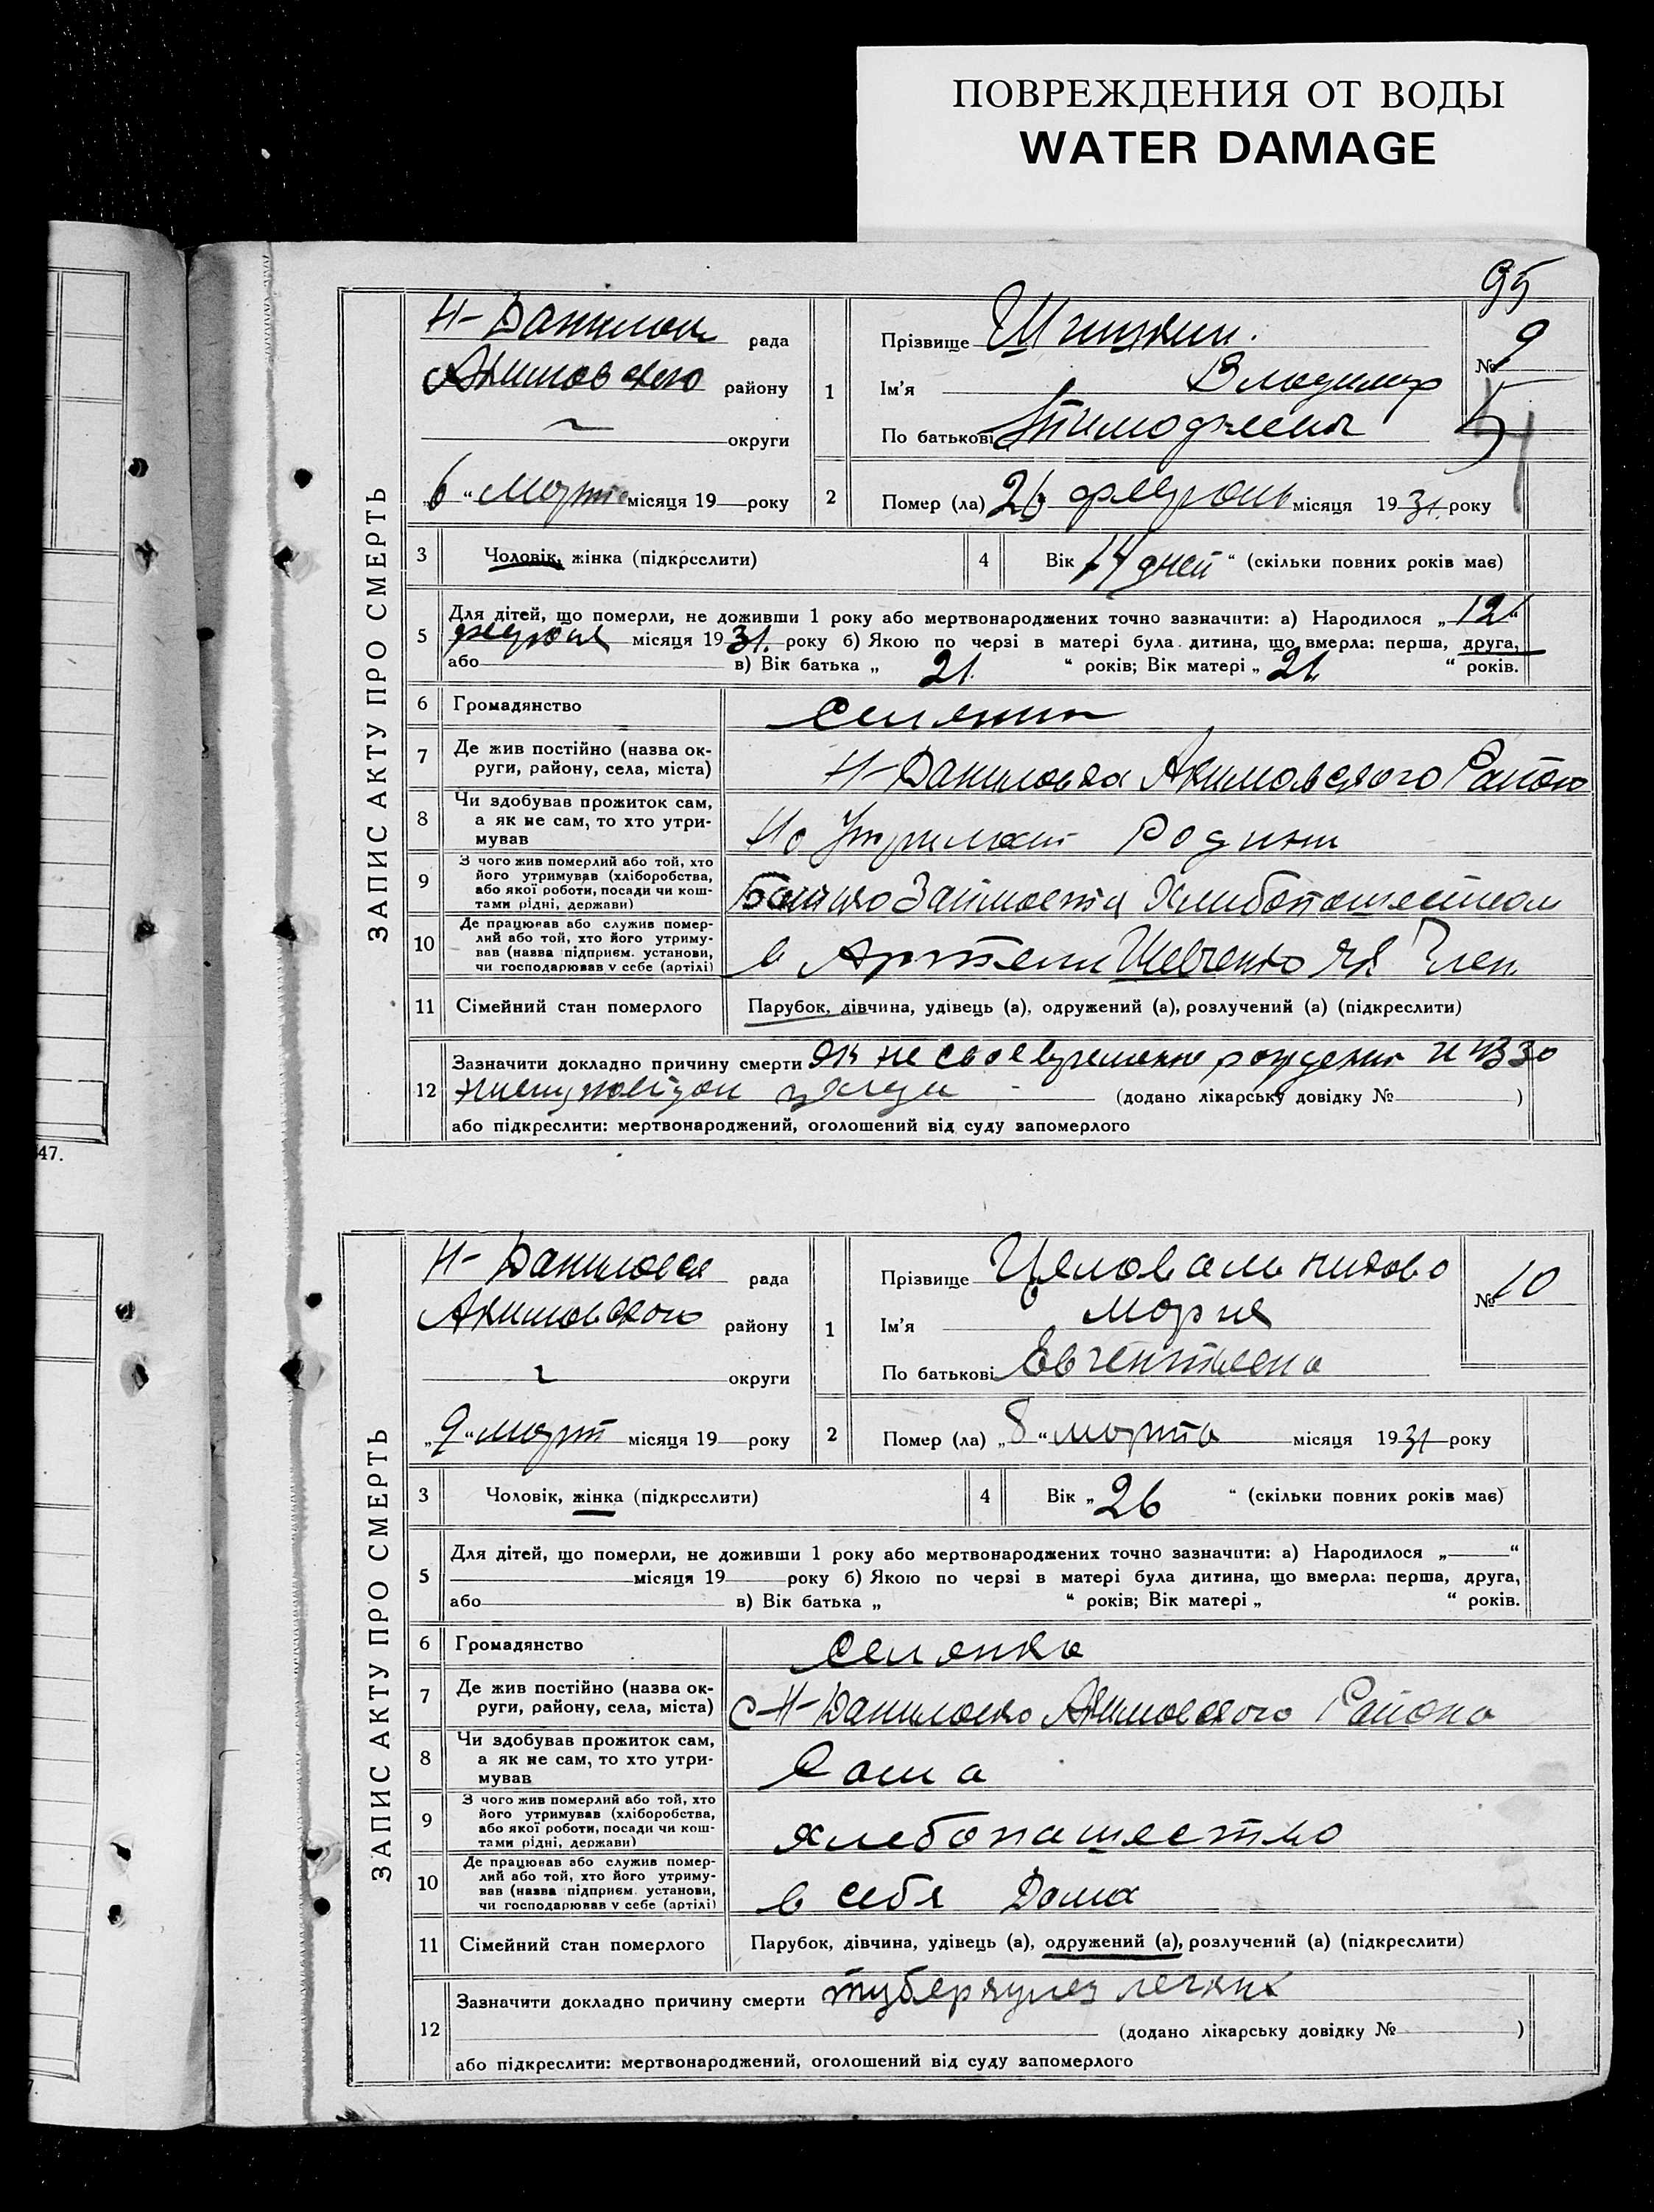 ПОВРЕЖДЕНИЯ ОТ ВОДЫ
WATER DAMAGE
95
ЗАПИС АКТУ ПРО СМЕРТЬ
Н-Данилов рада
Акимовского району
округи
„6“ марта місяця 19 року
1
Прізвище Шишкин.
Ім'я Владимир
По батькові
№ 9
2 Помер (ла) 26 февраль місяця 1931 року
3 Чоловік, жінка (підкреслити)
4 Вік 14 дней “ (скільки повних років має)
5 Для дітей, що померли, не доживши 1 року або мертвонароджених точно зазначити: а) Народилося „12“
февраля місяця 1931. року б) Якою по черзі в матері була дитина, що вмерла: перша, друга,
або в) Вік батька „ 21. “ років; Вік матері „ 21. “ років.
6 Громадянство селянин
7 Де жив постійно (назва ок-
руги, району, села, міста) Н-Даниловка Акимовского Району
8 Чи здобував прожиток сам,
а як не сам, то хто утри-
мував На Утримані Родини
9 З чого жив померлий або той, хто
його утримував (хліборобства,
або якої роботи, посади чи кош-
тами рідні, держави) Батько Займается Хлибопашеством
10 Де працював або служив помер-
лий або той, хто його утриму-
вав (назва підприєм. установи,
чи господарював у себе (артілі) в Артели Шевченко як Член
11 Сімейний стан померлого Парубок, дівчина, удівець (а), одружений (а), розлучений (а) (підкреслити)
12 Зазначити докладно причину смерти не своевременно рождения и изза
(додано лікарську довідку № )
або підкреслити: мертвонароджений, оголошений від суду запомерлого
47.
ЗАПИС АКТУ ПРО СМЕРТЬ
Н-Даниловся рада
Акимовского району
округи
„9“ март місяця 19 року
1
Прізвище Целовальникова
Ім'я Мария
По батькові
№ 10
2 Помер (ла) „8“ марта місяця 1931 року
3 Чоловік, жінка (підкреслити)
4 Вік „26 “ (скільки повних років має)
5 Для дітей, що померли, не доживши 1 року або мертвонароджених точно зазначити: а) Народилося „ “
місяця 19 року б) Якою по черзі в матері була дитина, що вмерла: перша, друга,
або в) Вік батька „ “ років; Вік матері „ “ років.
6 Громадянство селянка
7 Де жив постійно (назва ок-
руги, району, села, міста) с Н-Даниловка Акимовского Района
8 Чи здобував прожиток сам,
а як не сам, то хто утри-
мував Сама
9 З чого жив померлий або той, хто
його утримував (хліборобства,
або якої роботи, посади чи кош-
тами рідні, держави) хлебопашество
10 Де працював або служив помер-
лий або той, хто його утриму-
вав (назва підприєм. установи,
чи господарював у себе (артілі) в себя Дома
11 Сімейний стан померлого Парубок, дівчина, удівець (а), одружений (а), розлучений (а) (підкреслити)
12 Зазначити докладно причину смерти туберкулез легких
(додано лікарську довідку № )
або підкреслити: мертвонароджений, оголошений від суду запомерлого